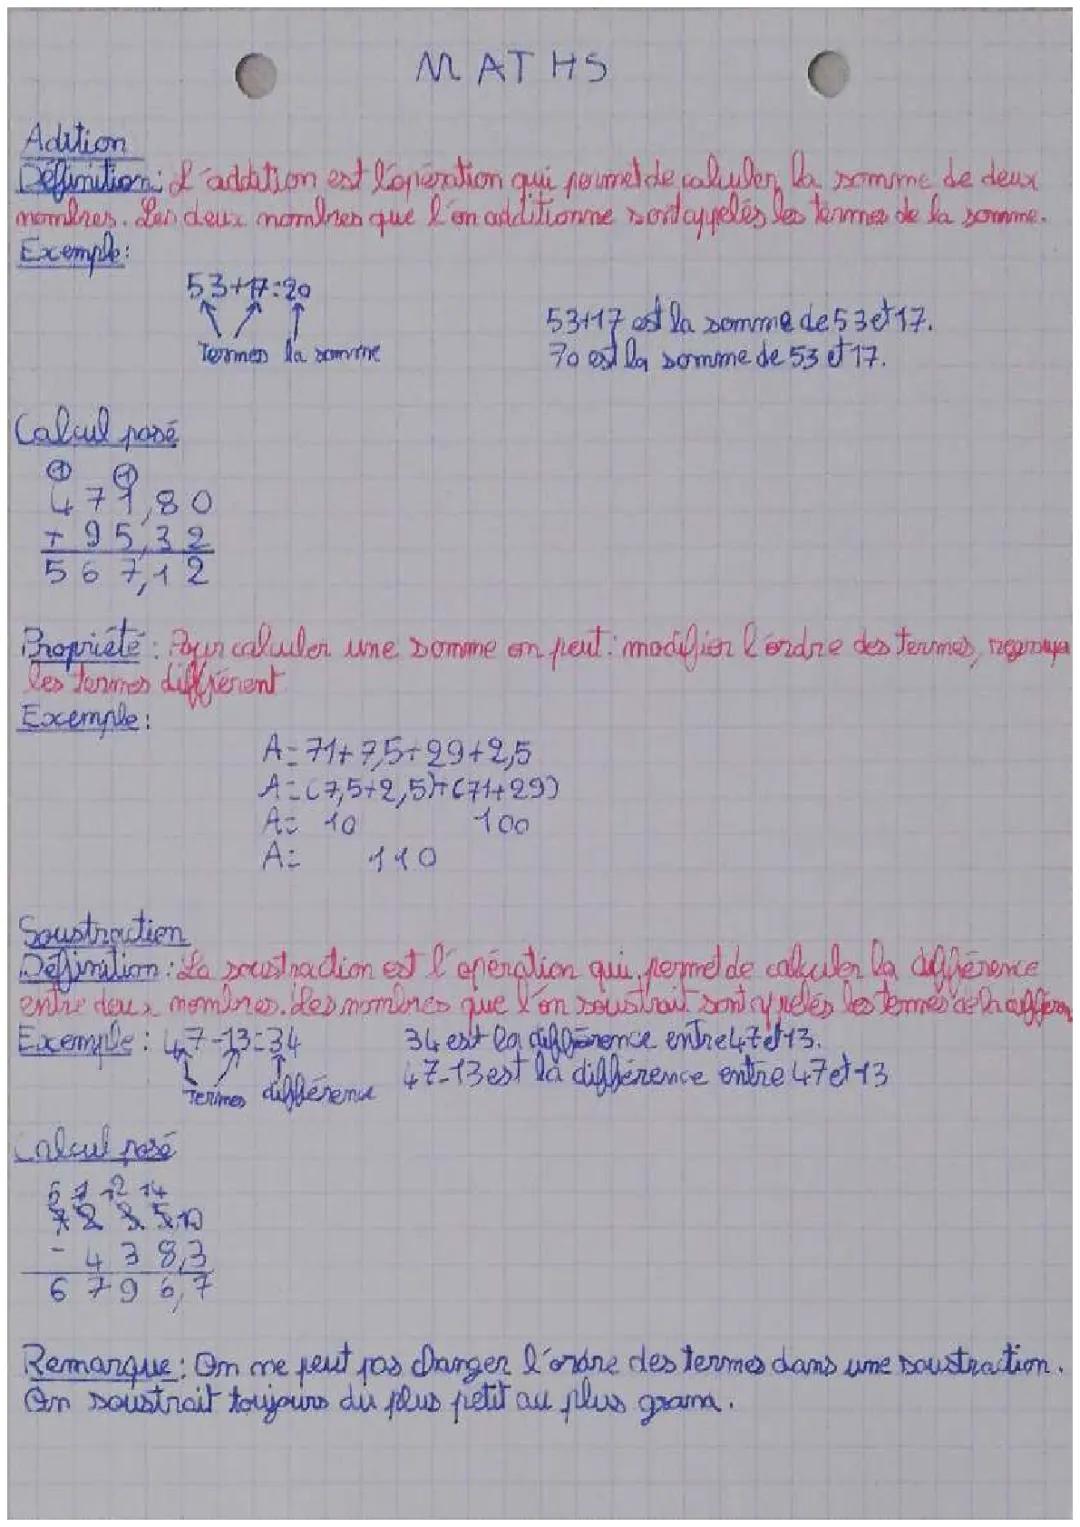 MATHS
Adition
Définition: L'addition est l'opération qui permet de calculer la somme de deux
nombres. Les deux nombres que l'on additionne sont appelés les termes de la somme.
Exemple:
53+17=20
Termes la somme
53+17 est la somme de 53 et 17.
70 est la somme de 53 et 17.
Calcul posé
1 1
471,80
+ 95,32
567,12
Propriété: Pour calculer une somme on peut: modifier l'ordre des termes,
les termes différent
Exemple:
A=71+7,5+29+2,5
A=(7,5+2,5)+(71+29)
A= 10 100
A= 110
Soustraction
Définition: La soustraction est l'opération qui permet de calculer la différence
entre deux nombres. Les nombres que l'on soustrait sont appelés les termes de la
Exemple: 47-13=34
Termes différence
34 est la différence entre 47 et 13.
47-13 est la différence entre 47 et 13
Calcul posé
6 12 14
- 4 3 8,3
6 7 9 6,7
Remarque: On ne peut pas changer l'ordre des termes dans une soustraction.
On soustrait toujours du plus petit au plus